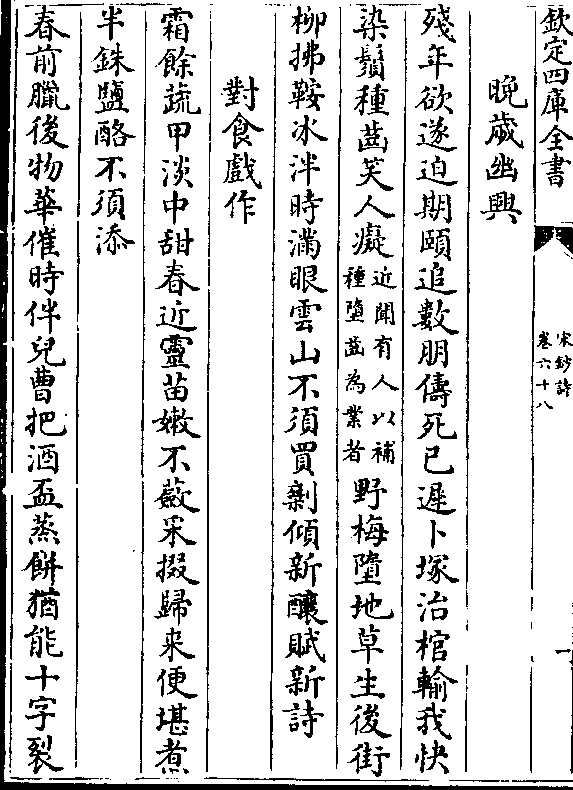 欽定四庫全書
宋詩鈔
卷六十八
一
晚歲幽興
殘年欲遂迫期頤追數朋儔死已遲卜塚治棺輸我快
染鬚種齒笑人癡近聞有人以補種墮齒為業者野梅墮地草生後街
柳拂鞍冰泮時滿眼雲山不須買剩傾新釀賦新詩
對食戲作
霜餘蔬甲淡中甜春近靈苗嫩不蘞采掇歸来便堪煮
半銖鹽酪不須添
春前臘後物華催時伴兒曹把酒盃蒸餅猶能十字裂